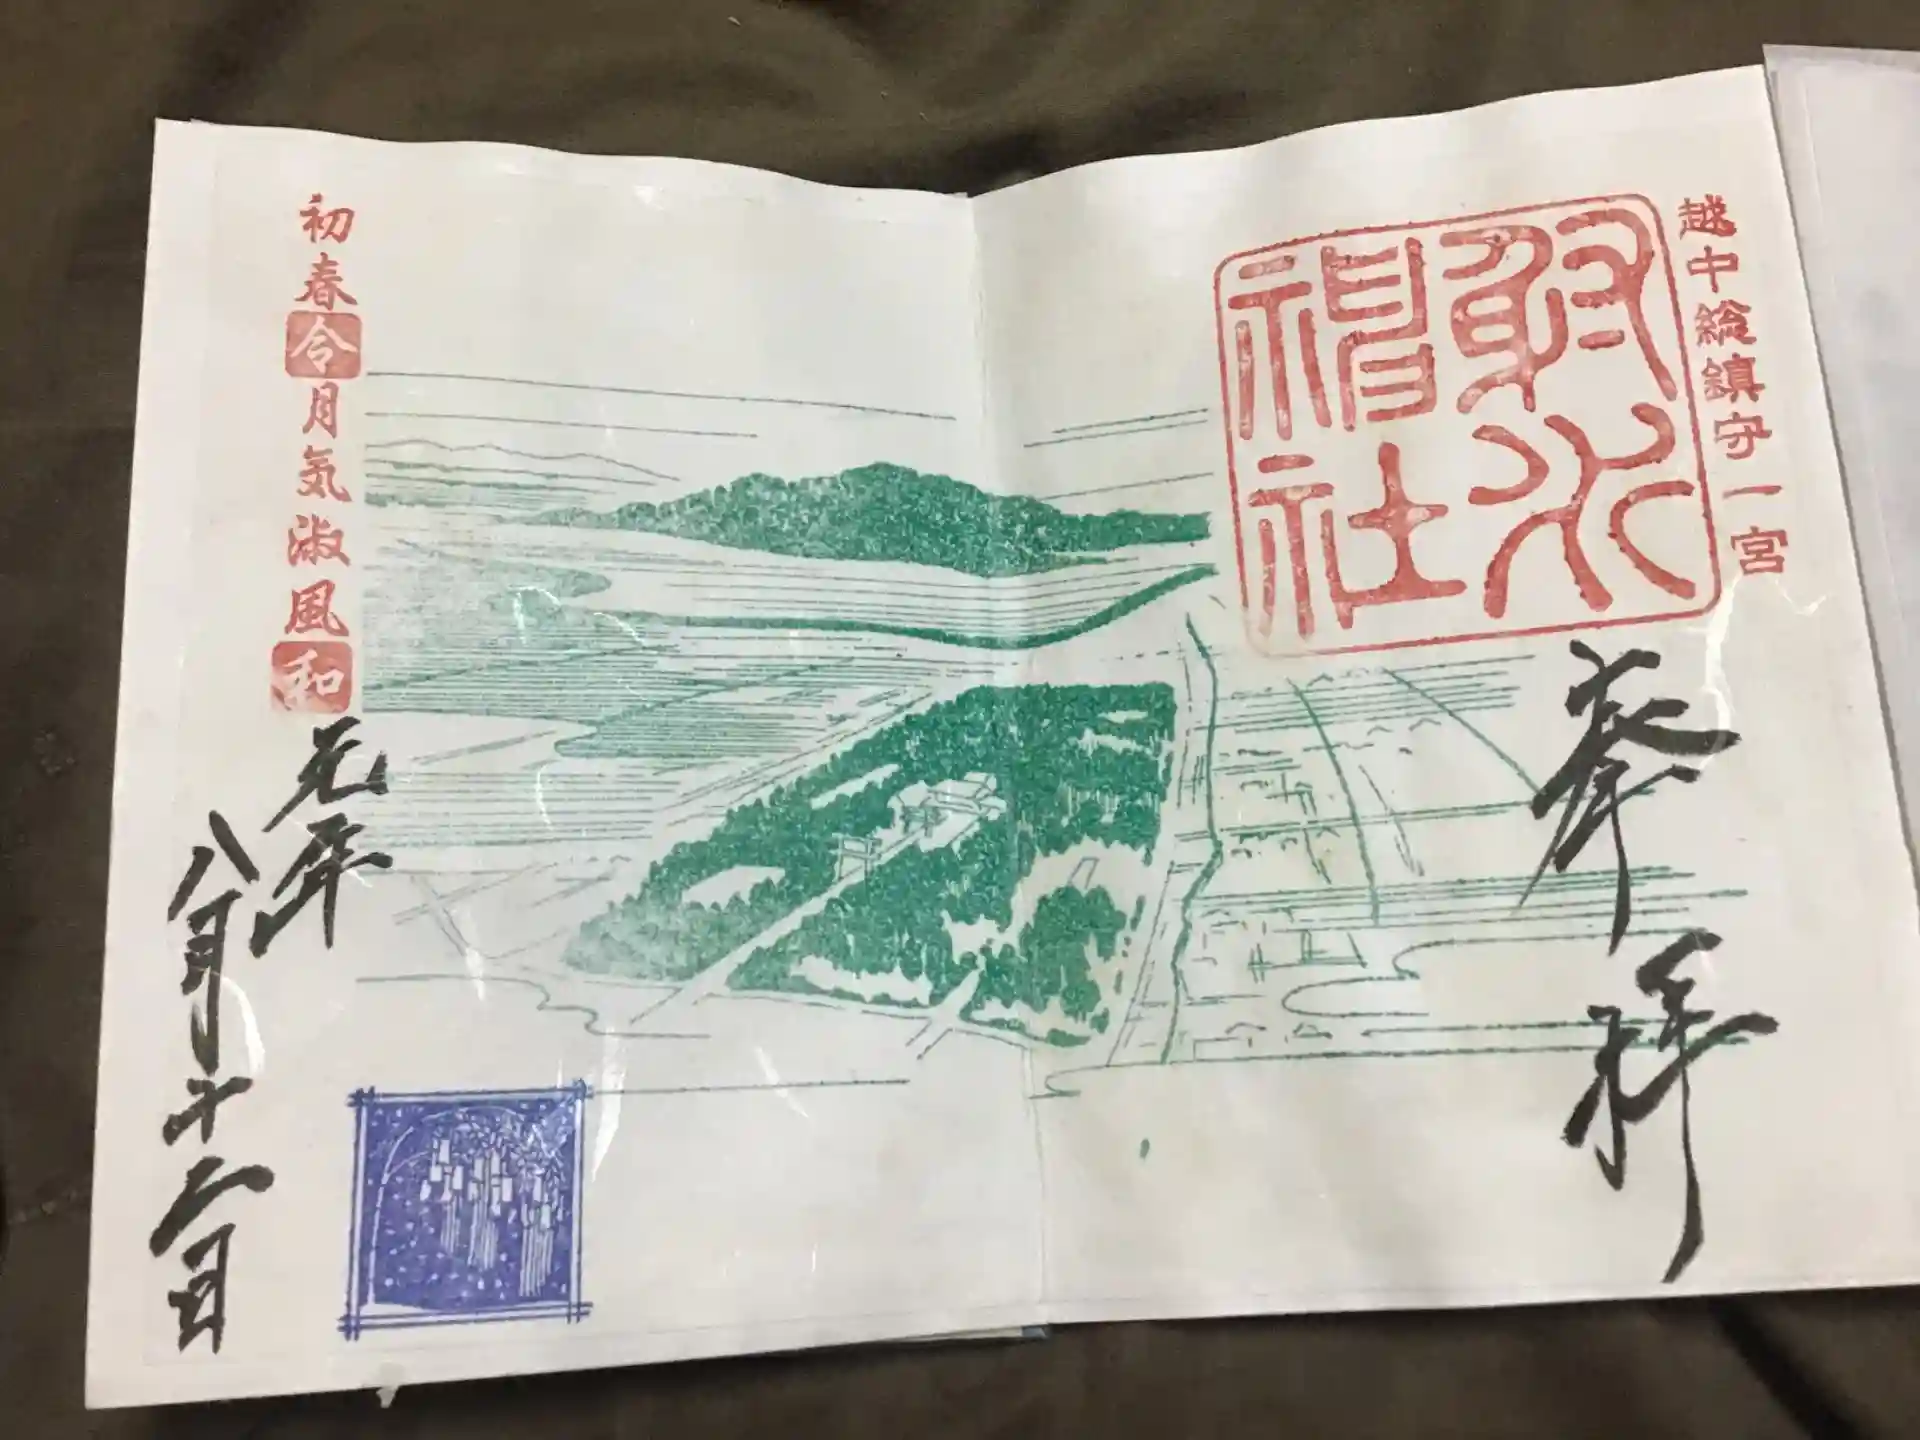 越中総鎮守一宮
射水
神社
奉拝
初春令月気淑風和
元年
八月十二日